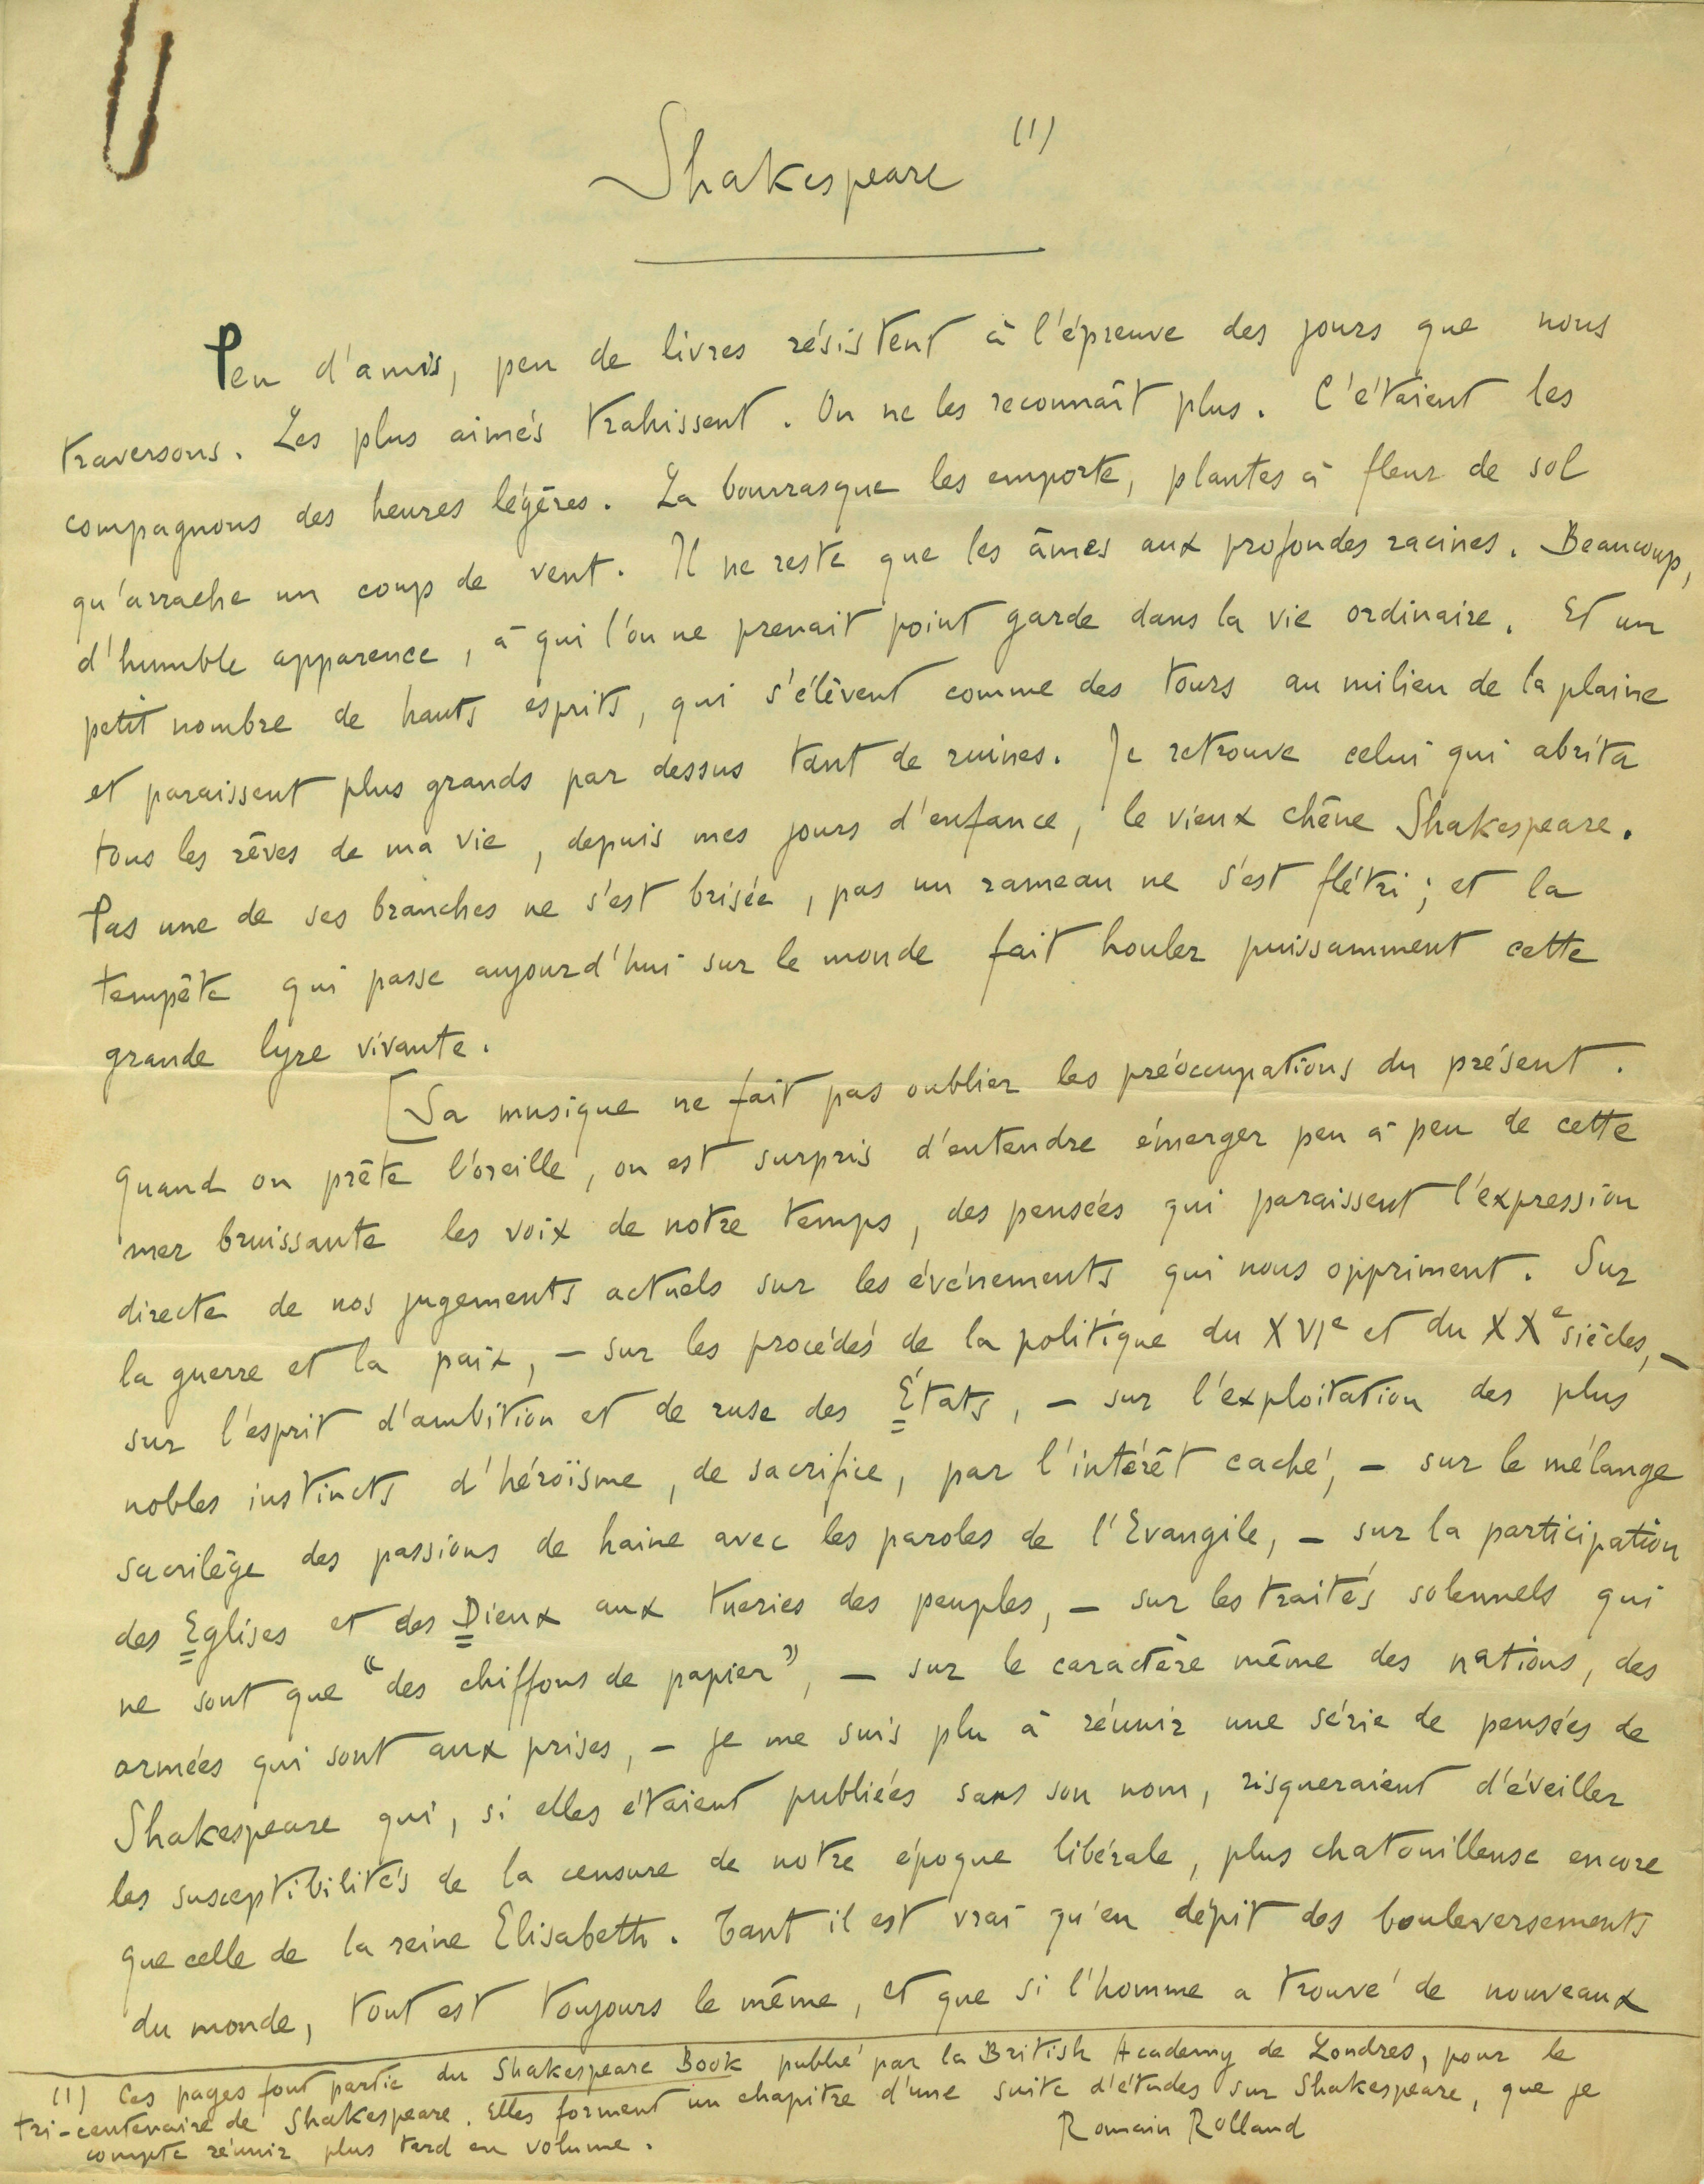 Shakespeare (1)
Peu d'amis, peu de livres résistent à l'épreuve des jours que nous
traversons. Les plus aimés trahissent. On ne les reconnaît plus. C'étaient les
compagnons des heures légères. La bourrasque les emporte, plantes à fleur de sol
qu'arrache un coup de vent. Il ne reste que les âmes aux profondes racines. Beaucoup,
d'humble apparence, à qui l'on ne prenait point garde dans la vie ordinaire. Et un
petit nombre de hauts esprits, qui s'élèvent comme des tours au milieu de la plaine
et paraissent plus grands par dessus tant de ruines. Je retrouve celui qui abrita
tous les rêves de ma vie, depuis mes jours d'enfance, le vieux chêne Shakespeare.
Pas une de ses branches ne s'est brisée, pas un rameau ne s'est flétri; et la
tempête qui passe aujourd'hui sur le monde fait houler puissamment cette
grande lyre vivante.
[Sa musique ne fait pas oublier les préoccupations du présent.
Quand on prête l'oreille, on est surpris d'entendre émerger peu à peu de cette
mer bruissante les voix de notre temps, des pensées qui paraissent l'expression
directe de nos jugements actuels sur les événements qui nous oppriment. Sur
la guerre et la paix, – sur les procédés de la politique du XVIe et du XXe siècles, –
sur l'esprit d'ambition et de ruse des États, – sur l'exploitation des plus
nobles instincts d'héroïsme, de sacrifice, par l'intérêt caché, – sur le mélange
sacrilège des passions de haine avec les paroles de l'Evangile, – sur la participation
des Eglises et des Dieux aux tueries des peuples, – sur les traités solennels qui
ne sont que "des chiffons de papier", – sur le caractère même des nations, des
armées qui sont aux prises, – je me suis plu à réunir une série de pensées de
Shakespeare qui, si elles étaient publiées sans son nom, risqueraient d'éveiller
les susceptibilités de la censure de notre époque libérale, plus chatouilleuse encore
que celle de la reine Elisabeth. Tant il est vrai qu'en dépit des bouleversements
du monde, tout est toujours le même, et que si l'homme a trouvé de nouveaux
(1) Ces pages font partie du Shakespeare Book publié par la British Academy de Londres, pour le
tri-centenaire de Shakespeare. Elles forment un chapitre d'une suite d'études sur Shakespeare, que je
compte réunir plus tard en volume.
Romain Rolland